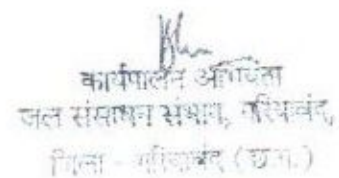 कार्यपालन अभियंता
जल संसाधन संभाग, गरियाबंद,
जिला - गरियाबंद (छ.ग.)